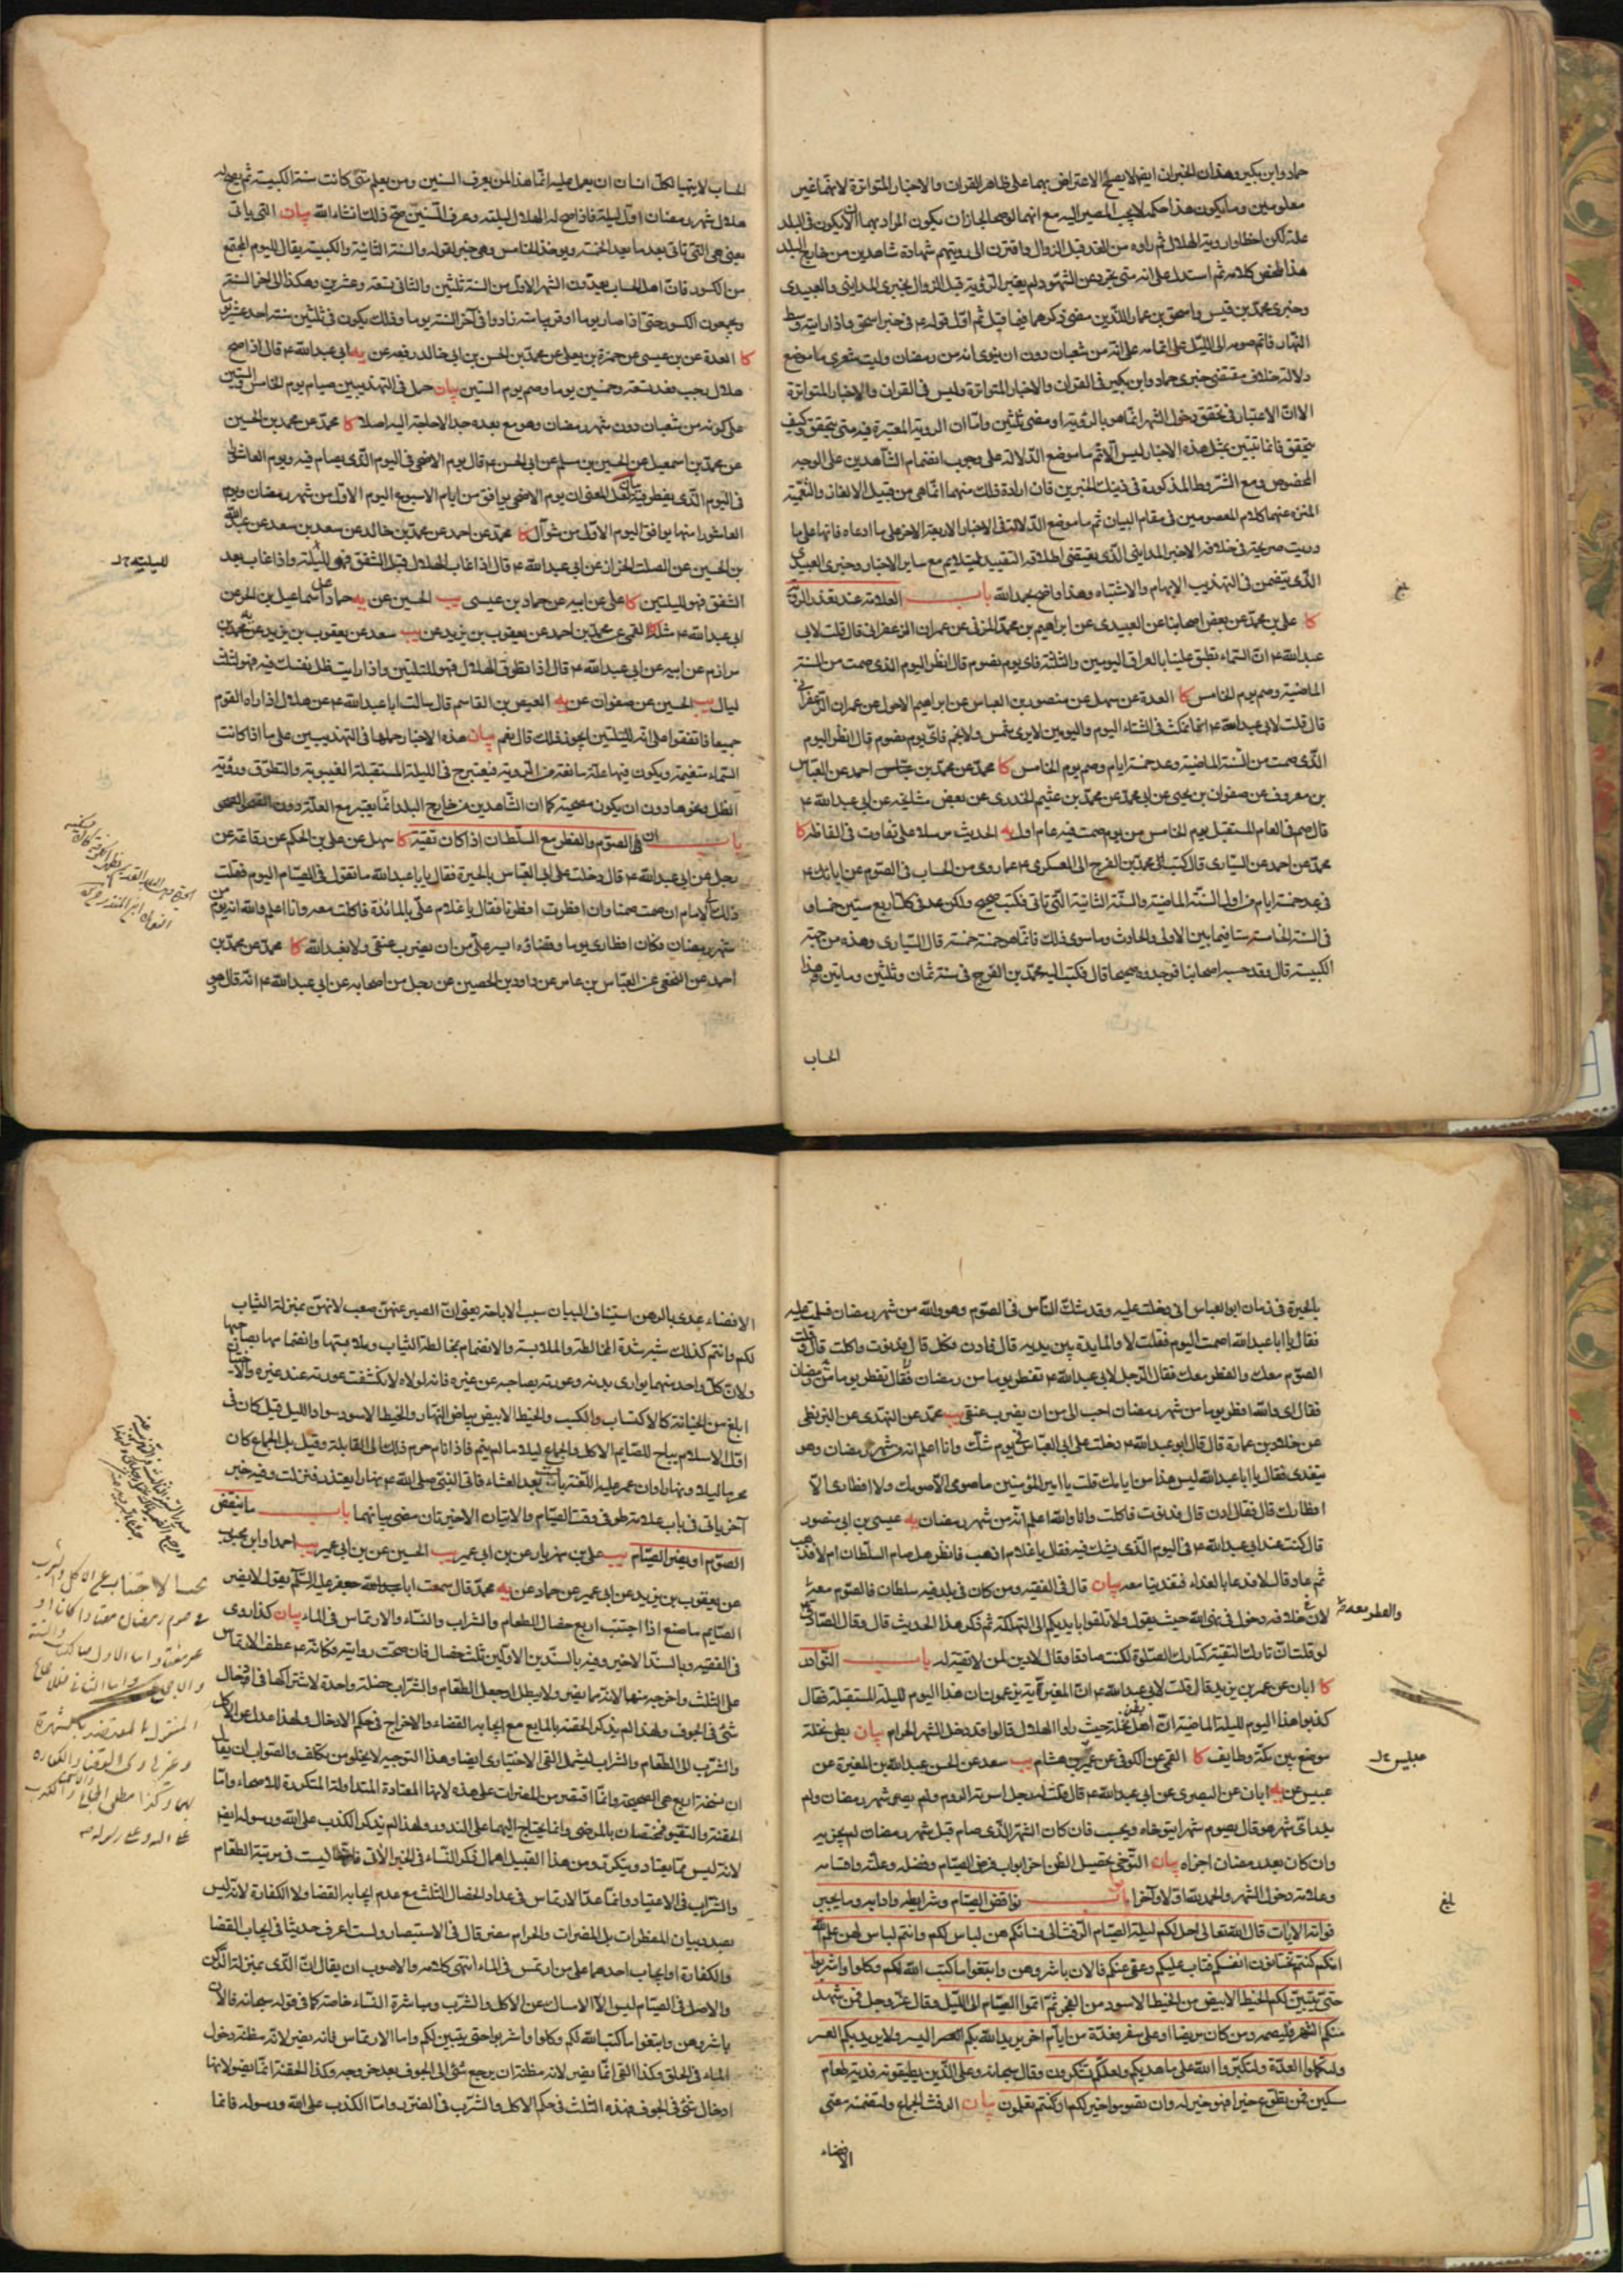 حماد وابن بكير وهذان الخبران ايضا لا يصلح الاعتراض بهما على ظاهر القران والاخبار المتواترة لانهما غير
معلومين وما يكون هذا حكمه لا يجب المصير اليه مع انهما لو صحا لجاز ان يكون المراد بهما اذا كان يكون في البلد
علة لكن اخطاوا رؤية الهلال ثم راوه من الغد قبل الزوال واقترن الى رؤيتهم شهادة شاهدين من خارج البلد
هذا ملخص كلامه ثم استدل على انه متى تجرد عن الشهود لم يعتبر الرؤية قبل الزوال بخبرى المداينى والعبيدى
وخبرى محمد بن قيس واسحق بن عمار اللذين مضى ذكرهما فيما قبل ثم اول قوله ع في خبر اسحق واذا رايته وسط
النهار فاتم صومه الى الليل على اتمامه على انه من شعبان دون ان ينوى انه من رمضان وليت شعرى ما موضع
دلالة خلاف مقتضى خبرى حماد وابن بكير في القران والاخبار المتواترة وليس في القران والاخبار المتواترة
الا ان الاعتبار في تحقق دخول الشهر انما هو بالرؤية او مضى ثلثين واما ان الرؤية المعتبرة فيه متى يتحقق وكيف
يتحقق فانما تبين بمثل هذه الاخبار ليس الا ثم ما موضع الدلالة على وجوب انضمام الشاهدين على الوجه
المخصوص ومع الشروط المذكورة في ذينك الخبرين فان ارادة ذلك منهما انما هى من قبيل الالغاز والتعمية
المنزه عنهما كلام المعصومين في مقام البيان ثم ما موضع الدلالة في الاخبار الاربعة الاخر على ما ادعاه فانها على ما
دريت صريحة في خلافه الا خبر المداينى الذى يقتضى اطلاقه التقييد ليتلايم مع ساير الاخبار وخبرى العبيدى
الذى يتضمن في التهذيب الابهام والاشتباه وهذا واضح بحمد الله باب العلامة عند تعذر الرؤية
كا على بن محمد عن بعض اصحابنا عن العبيدى عن ابراهيم بن محمد المزنى عن عمران الزعفرانى قال قلت لابى
عبد الله ع ان السماء تطبق علينا بالعراق اليومين والثلثة فاى يوم نصوم قال انظر اليوم الذى صمت من السنة
الماضية وصم يوم الخامس كا العدة عن سهل عن منصور بن العباس عن ابراهيم الاحول عن عمران الزعفرانى
قال قلت لابى عبد الله ع انما نمكث في الشتاء اليوم واليومين لا يرى شمس ولا نجم فاى يوم نصوم قال انظر اليوم
الذى صمت من السنة الماضية وعد خمسة ايام وصم يوم الخامس كا محمد عن محمد بن احمد عن العباس
بن معروف عن صفوان بن يحيى عن ابى محمد عن محمد بن عثيم الخدرى عن بعض مشايخه عن ابى عبد الله ع
قال صم في العام المستقبل يوم الخامس من يوم صمت فيه عام اول يه الحديث مرسلا على تفاوت في الفاظه كا
محمد عن احمد عن السيارى قال كتب محمد بن الفرج الى العسكرى ع عما روى من الحساب في الصوم عن ابائك ع
في عد خمسة ايام من اول السنة الماضية والسنة الثانية التى تاتى فكتب صحيح ولكن عد في كل اربع سنين خمسا وفي
السنة الخامسة ستا فيما بين الاولى والحادث وما سوى ذلك فانما هو خمسة خمسة قال السيارى وهذه من جهة
الكبيسة قال وقد حسبه اصحابنا فوجدوه صحيحا قال فكتب اليه محمد بن الفرج في سنة ثمان وثلثين وماتين هذا
الحساب
بلغ
الحساب لا يتهيا لكل انسان ان يعمل عليه انما هذا لمن يعرف السنين ومن يعلم متى كانت سنة الكبيسة ثم يصح له
هلال شهر رمضان اول ليلة فاذا صح له الهلال لليلته وعرف السنين صح ذلك انشاء الله بيان التى ياتى
يعنى هى التى تاتى بعد ما بعد الخمسة وهو هذا الخامس وهى خبر لقوله والسنة الثانية والكبيسة يقال لليوم المجتمع
من الكسور فان اهل الحساب يعدون الشهر الاول من السنة ثلثين والثانى تسعة وعشرين وهكذا الى اخر السنة
ويجمعون الكسور حتى اذا صار يوما او قريبا منه زادوا في آخر السنة يوما وذلك يكون في ثلثين سنة احد عشر يوما
كا العدة عن بن عيسى عن حمزة بن يعلى عن محمد بن الحسن بن ابى خالد رفعه عن يه ابى عبد الله ع قال اذا صح
هلال رجب فعد تسعة وخمسين يوما وصم يوم الستين بيان حمل في التهذيبين صيام يوم الخامس والستين
على كونه من شعبان دون شهر رمضان وهو مع بعده جدا لا حاجة اليه اصلا كا محمد عن محمد بن الحسين
عن محمد بن اسمعيل عن الحسين بن مسلم عن ابى الحسن ع قال يوم الاضحى في اليوم الذى يصام فيه ويوم العاشورا
في اليوم الذى يفطر فيه بيان لعل المعنى ان يوم الاضحى يوافق من ايام الاسبوع اليوم الاول من شهر رمضان ويوم
العاشورا منها يوافق اليوم الاول من شوال كا محمد عن احمد عن محمد بن خالد عن سعد بن سعد عن عبد الله
بن الحسين عن الصلت الخزاز عن ابى عبد الله ع قال اذا غاب الهلال قبل الشفق فهو لليلة واذا غاب بعد
الشفق فهو لليلتين كا على عن ابيه عن حماد بن عيسى يب الحسين عن يه حماد عن اسماعيل بن الحر عن
ابى عبد الله ع مثله كا القمى عن محمد بن احمد عن يعقوب بن يزيد عن يب سعد عن يعقوب بن يزيد عن يه محمد بن
مرازم عن ابيه عن ابى عبد الله ع قال اذا تطوق الهلال فهو لليلتين واذا رايت ظل نفسك فيه فهو لثلث
ليال يب الحسين عن صفوان عن يه العيص بن القاسم قال سالت ابا عبد الله ع عن هلال اذا راه القوم
جميعا فاتفقوا على انه لليلتين ايجوز ذلك قال نعم بيان هذه الاخبار حملها في التهذيبين على ما اذا كانت
السماء متغيمة ويكون فيها علة مانعة من الرؤية فيعتبر ح في الليلة المستقبلة الغيبوبة والتطوق ورؤية
الظل ونحوها دون ان يكون مصحية كما ان الشاهدين من خارج البلد انما يعتبر مع العلة دون الصحو
باب ان الصوم والفطر مع السلطان اذا كان تقية كا سهل عن على بن الحكم عن رفاعة عن
رجل عن ابى عبد الله ع قال دخلت على ابى العباس بالحيرة فقال يا ابا عبد الله ما تقول في الصيام اليوم فقلت
ذلك الى الامام ان صمت صمنا وان افطرت افطرنا فقال يا غلام على بالمائدة فاكلت معه وانا اعلم والله انه يوم من
شهر رمضان فكان افطارى يوما وقضاؤه ايسر على من ان يضرب عنقى ولا يعبد الله كا محمد عن محمد بن
احمد عن النخعى عن العباس بن عامر عن داود بن الحصين عن رجل من اصحابه عن ابى عبد الله ع انه قال وهو
بالحيرة في زمان ابى العباس انى دخلت عليه وقد شك الناس في الصوم وهو والله من شهر رمضان فسلمت عليه
فقال يا ابا عبد الله اصمت اليوم فقلت لا والمايدة بين يديه قال فادن فكل قال فدنوت واكلت قال وقلت
الصوم معك والفطر معك فقال الرجل لابى عبد الله ع تفطر يوما من رمضان فقال تفطر يوما من شهر رمضان
فقال اى والله افطر يوما من شهر رمضان احب الى من ان يضرب عنقى يب محمد عن النهدى عن البزنطى
عن خلاد بن عمارة قال قال ابو عبد الله ع دخلت على ابى العباس في يوم شك وانا اعلم انه من شهر رمضان وهو
يتغدى فقال يا ابا عبد الله ليس هذا من ايامك قلت يا امير المؤمنين ما صومى الا صومك ولا افطارى الا
افطارك قال فقال ادن قال فدنوت فاكلت وانا والله اعلم انه من شهر رمضان يه عيسى بن ابى منصور
قال كنت عند ابى عبد الله ع في اليوم الذى يشك فيه فقال يا غلام اذهب فانظر هل صام السلطان ام لا فذهب
ثم عاد فقال لا فدعا بالغداء فتغدينا معه بيان قال في الفقيه ومن كان في بلد فيه سلطان فالصوم معه
لان في خلافه دخول في نهى الله حيث يقول ولا تلقوا بايديكم الى التهلكة ثم ذكر هذا الحديث قال وقال الصادق ع
لو قلت ان تارك التقية كتارك الصلوة لكنت صادقا وقال لا دين لمن لا تقية له باب النوادر
كا ابان عن عمر بن يزيد قال قلت لابى عبد الله ع ان المغيرية يزعمون ان هذا اليوم لليلة المستقبلة فقال
كذبوا هذا اليوم لليلة الماضية ان اهل بطن نخلة حيث راوا الهلال قالوا قد دخل الشهر الحرام بيان بطن نخلة
موضع بين مكة وطايف كا القمى عن الكوفى عن عبيس بن هشام يب سعد عن الحسن عبد الله بن المغيرة عن
عبيس عن يه ابان عن البصرى عن ابى عبد الله ع قال قلت له رجل اسرته الروم ولم يصم شهر رمضان ولم
يدر اى شهر هو قال يصوم شهرا يتوخاه ويحسب فان كان الشهر الذى صام قبل شهر رمضان لم يجزيه
وان كان بعد رمضان اجزاه بيان التوخى تحصيل الظن اخر ابواب فرض الصيام وفضله وعلته واقسامه
وعلامة دخول الشهر والحمد لله اولا وآخرا ابواب نواقض الصيام وشرايطه وادابه وما يجبر
فواته الايات قال الله تعالى احل لكم ليلة الصيام الرفث الى نسائكم هن لباس لكم وانتم لباس لهن علم الله
انكم كنتم تختانون انفسكم فتاب عليكم وعفى عنكم فالان باشروهن وابتغوا ما كتب الله لكم وكلوا واشربوا
حتى يتبين لكم الخيط الابيض من الخيط الاسود من الفجر ثم اتموا الصيام الى الليل وقال عز وجل فمن شهد
منكم الشهر فليصمه ومن كان مريضا او على سفر فعدة من ايام اخر يريد الله بكم اليسر ولا يريد بكم العسر
ولتكملوا العدة ولتكبروا الله على ما هديكم ولعلكم تشكرون وقال سبحانه وعلى الذين يطيقونه فدية طعام
مسكين فمن تطوع خيرا فهو خير له وان تصوموا خير لكم ان كنتم تعلمون بيان الرفث الجماع ولتضمنه معنى
الافضاء
والفطر معه
عبيس
بلغ
الافضاء عدى بالى وهن استيناف لبيان سبب الاباحة يعنى ان الصبر عنهن صعب لانهن بمنزلة الثياب
لكم وانتم كذلك شبه شدة المخالطة والملابسة والانضمام بمخالطة الثياب وملابستها وانضمامها بصاحبها
ولان كل واحد منهما يوارى بدنه وعورته بصاحبه عن غيره فانه لولاه لانكشفت عورته عند غيره والاختيان
ابلغ من الخيانة كالاكتساب والكسب والخيط الابيض بياض النهار والخيط الاسود سواد الليل قيل كان في
اول الاسلام يباح للصايم الاكل والجماع ليلا ما لم ينم فاذا نام حرم ذلك الى القابلة وقيل بل الجماع كان
محرما ليلا ونهارا وان عمر بعد العشاء فاتى النبى صلى الله ع نهارا يعتذر فنزلت وفيه خبر
آخر ياتى في باب علامة طرفى وقت الصيام والايتان الاخيرتان مضى بيانهما باب ما ينقض
الصوم او يضر الصيام يب على بن مهزيار عن بن ابى عمير يب الحسين عن بن ابى عمير يب احمد وابن محبوب
عن يعقوب بن يزيد عن ابى عمير عن حماد عن يه محمد قال سمعت ابا جعفر عليه السلم يقول لا يضر
الصايم ما صنع اذا اجتنب اربع خصال الطعام والشراب والنساء والارتماس في الماء بيان كذا روى
في الفقيه وبالسند الاخير وفيه بالسندين الاولين ثلث خصال فان صحت روايته فكانه ع عطف الارتماس
على الثلث واخرجه منها لانه مما يضر ولا يبطل او جعل الطعام والشراب خصلة واحدة لاشتراكهما في ادخال
شئ في الجوف ولهذا لم يذكر الحقنة بالمايع مع ايجابه القضاء والاخراج في حكم الادخال ولهذا عدل عن الاكل
والشرب الى الطعام والشراب ليشمل القى الاختيارى ايضا وهذا التوجيه لا يخلو من تكلف والصواب ان يقال
ان نسخة اربع هى الصحيحة وانما اقتصر من المفطرات على هذه لانها المعتادة المتداولة المتكررة للاصحاء واما
الحقنة والتقيؤ فمختصان بالمرضى وانما يحتاج اليهما على الندور ولهذا لم يذكر الكذب على الله ورسوله ايضا
لانه ليس مما يعتاد ويتكرر ومن هذا القبيل اهمال ذكر النساء في الخبر الاتى فانها ليست في مرتبة الطعام
والشراب في الاعتياد وانما عد الارتماس في عداد الخصال الثلث مع عدم ايجابه القضا ولا الكفارة لانه ليس
بصدد بيان المفطرات بل المضرات والحرام مضر قال في الاستبصار ولست اعرف حديثا في ايجاب القضا
والكفارة او ايجاب احدهما على من ارتمس في الماء انتهى كلامه والاصوب ان يقال ان الذى بمنزلة الركن
والاصل في الصيام ليس الا الامساك عن الاكل والشرب ومباشرة النساء خاصة كما في قوله سبحانه فالان
باشروهن وابتغوا ما كتب الله لكم وكلوا واشربوا حتى يتبين لكم واما الارتماس فانه يضر لانه مظنة دخول
الماء في الحلق وكذا القى انما يضر لانه مظنة ان يرجع شئ الى الجوف بعد خروجه وكذا الحقنة انما تضر لانها
ادخال شئ في الجوف فهذه الثلث في حكم الاكل والشرب في الضرر واما الكذب على الله ورسوله فانما